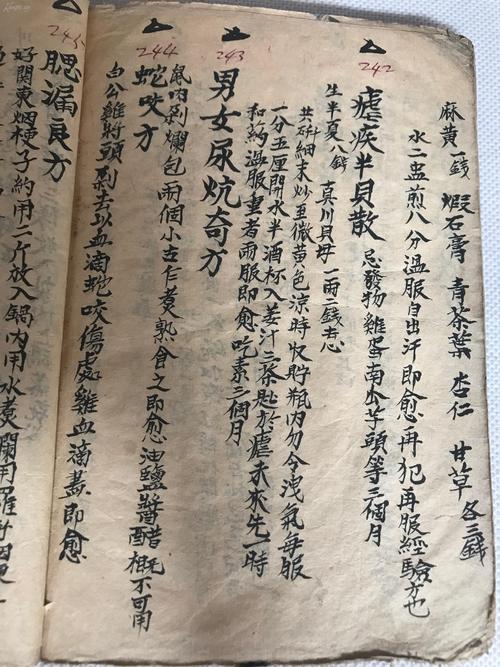 麻黄一錢 煅石膏 青茶葉 杏仁 甘草 各三錢
水二盅煎八分溫服自出汗即愈再犯再服經驗方也
242
瘧疾半貝散 忌發物雞蛋南瓜芋頭等三個月
生半夏八錢 真川貝母一兩二錢去心
共研細末炒至微黄色涼時收貯瓶內勿令洩氣每服
一分五厘開水半酒杯入姜汁三茶匙於瘧未來先一時
和药溫服重者兩服即愈吃素三個月
243
男女尿炕奇方
鼠肉剁爛包兩個小古乍煮熟食之即愈油鹽醬醋概不可用
244
蛇咬方
白公雞將頭剁去以血滴蛇咬傷處雞血滴盡即愈
245
腮漏良方
好関東烟梗子約用二斤放入鍋內用水煮爛用羅